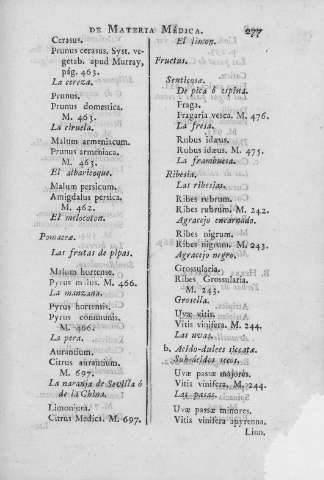 DE MATERIA MÉDICA. 277
Cerasus.
Prunus cerasus. Syst. ve-
getab. apud Murray,
pág. 463.
La cereza.
Prunus.
Prunus domestica.
M. 463.
La ciruela.
Malum armeniacum.
Prunus armeniaca.
M. 463.
El albaricoque.
Malum persicum.
Amigdalus persica.
M. 462.
El melocoton.
Pomaceæ.
Las frutas de pipas.
Malum hortense.
Pyrus malus. M. 466.
La manzana.
Pyrus hortensis.
Pyrus communis.
M. 466.
La pera.
Aurantium.
Citrus aurantium.
M. 697.
La naranja de Sevilla ó
de la China.
Limonium.
Citrus Medica. M. 697.
El limon.
Fructus.
Senticosæ.
De pica ó espina.
Fraga.
Fragaria vesca. M. 476.
La fresa.
Rubus idæus.
Rubus idæus. M. 475.
La frambuesa.
Ribesia.
Las ribesias.
Ribes rubrum.
Ribes rubrum. M. 242.
Agracejo encarnado.
Ribes nigrum.
Ribes nigrum. M. 243.
Agracejo negro.
Grossularia.
Ribes Grossularia.
M. 243.
Grosella.
Uvæ vitis.
Vitis vinifera. M. 244.
Las uvas.
b. Acido-dulces siccatæ.
Sub-ácidos secos.
Uvæ passæ majores.
Vitis vinifera. M. 244.
Las pasas.
Uvæ passæ minores.
Vitis vinifera apyrenna.
Linn.